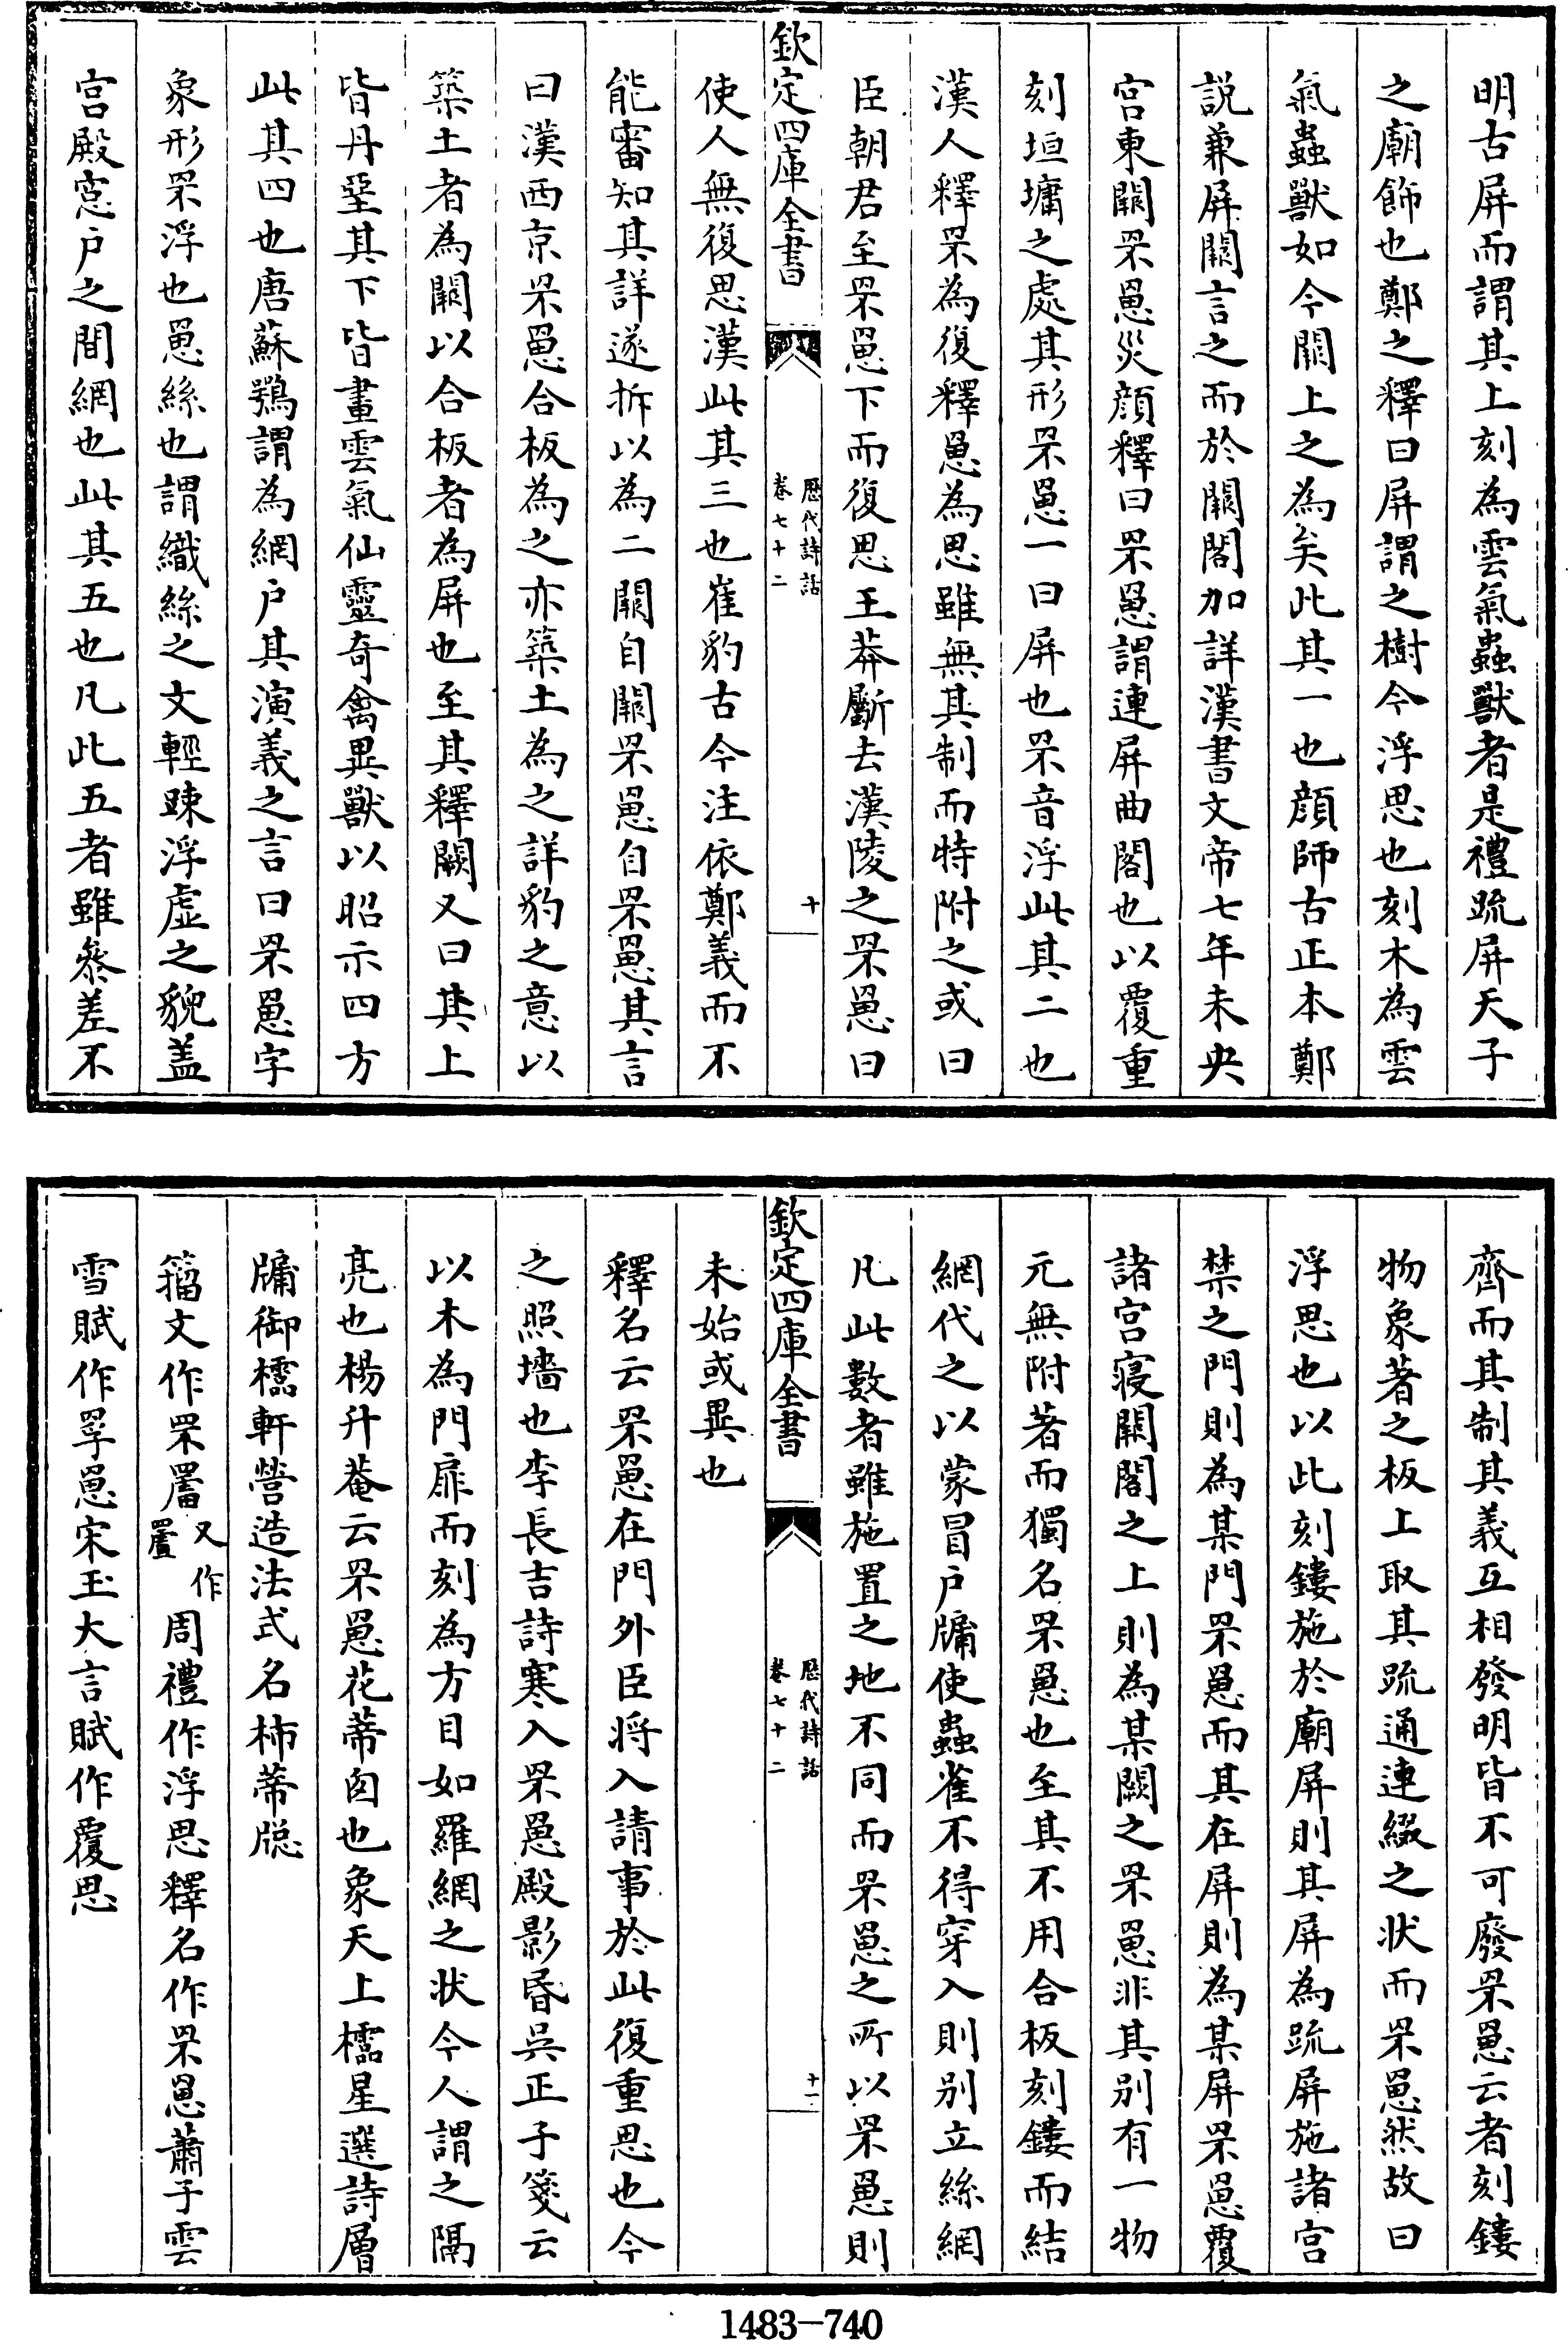 明古屏而謂其上刻為雲氣蟲獸者是禮疏屏天子
之廟飾也鄭之釋曰屏謂之樹今浮思也刻木為雲
氣蟲獸如今闕上之為矣此其一也顔師古正本鄭
説兼屏闕言之而於闕閣加詳漢書文帝七年未央
宫東闕罘罳災顔釋曰罘罳謂連屏曲閣也以覆重
刻垣墉之處其形罘罳一曰屏也罘音浮此其二也
漢人釋罘為復釋罳為思雖無其制而特附之或曰
臣朝君至罘罳下而復思王莽斸去漢陵之罘罳曰
欽定四庫全書
歴代詩話
卷七十二
十
使人無復思漢此其三也崔豹古今注依鄭義而不
能審知其詳遂拆以為二闕自闕罘罳自罘罳其言
曰漢西京罘罳合板為之亦築土為之詳豹之意以
築土者為闕以合板者為屏也至其釋闕又曰其上
皆丹堊其下皆畫雲氣仙靈奇禽異獸以昭示四方
此其四也唐蘇鶚謂為網户其演義之言曰罘罳字
象形罘浮也罳絲也謂織絲之文輕疎浮虛之貌盖
宫殿窓户之間網也此其五也凡此五者雖參差不
齊而其制其義互相發明皆不可廢罘罳云者刻鏤
物象著之板上取其疏通連綴之状而罘罳然故曰
浮思也以此刻鏤施於廟屏則其屏為疏屏施諸宫
禁之門則為某門罘罳而其在屏則為某屏罘罳覆
諸宫寢闕閣之上則為某闕之罘罳非其别有一物
元無附著而獨名罘罳也至其不用合板刻鏤而結
網代之以蒙冒户牖使蟲雀不得穿入則别立絲網
凡此數者雖施置之地不同而罘罳之所以罘罳則
欽定四庫全書
歴代詩話
卷七十二
十一
未始或異也
釋名云罘罳在門外臣将入請事於此復重思也今
之照墻也李長吉詩寒入罘罳殿影昏吳正子箋云
以木為門扉而刻為方目如羅網之状今人謂之隔
亮也楊升菴云罘罳花蒂囱也象天上櫺星選詩層
牖御櫺軒營造法式名柿蒂牎
籀文作罘罯又作罿周禮作浮思釋名作罘罳蕭子雲
雪賦作罦罳宋玉大言賦作覆思
1483-740